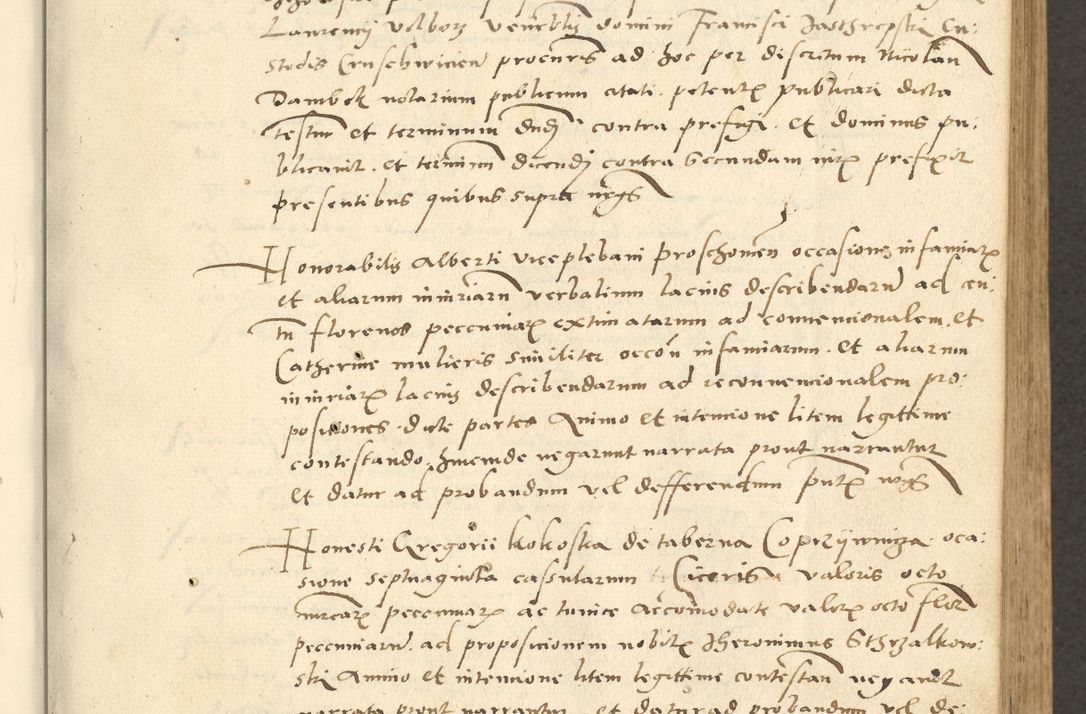 Laurencij Volborz venerblis domini Francisci Jasthrzpski Cu-
stodis Cruschwicien procuris ad hoc per discretum Nicolaū
Dambek notarium publicum citati. petentz publicari dicta
testiū et terminum dndj contra prefigi. et dominus pu-
blicauit. et terminū dicendj contra Secundam iurz prefixit
presentibus quibus supra urgs
Honorabilis Alberti viceplebani proschouien occasione infamiarz
et aliarum iniuriarū verbalium lacius describendarū ad cen-
tū florenos peccuniarz extimatarum ad conuencionalem. et
Catherine mulieris similiter occōn infamiarum. et aliarum
iniuriarz lacius describendarum ad reconuencionalem pro-
posiciones. dicte partes Animo et intencione litem legittime
contestando. hincinde negarunt narrata prout narrantur
et datur ad probandum vel defferendum pntz urgs
Honesti Gregorii kokoska de taberna Coprzijwnicza oca-
sione septuaginta cassularum Ciceris valoris octo
mrcarz peccuniarz ac tunice Accōmodate valorz octo flor
peccuniarū. ad proposicionem nobilz Jheronimus Sthrzalkow-
ski Animo et intencione litem legittime contestan negauit
narrata prout narrantur et datur ad probandum vel de-